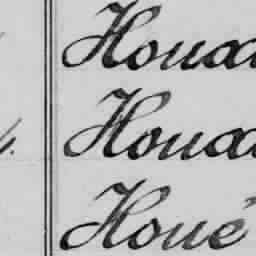 Houa
Houa
Houé